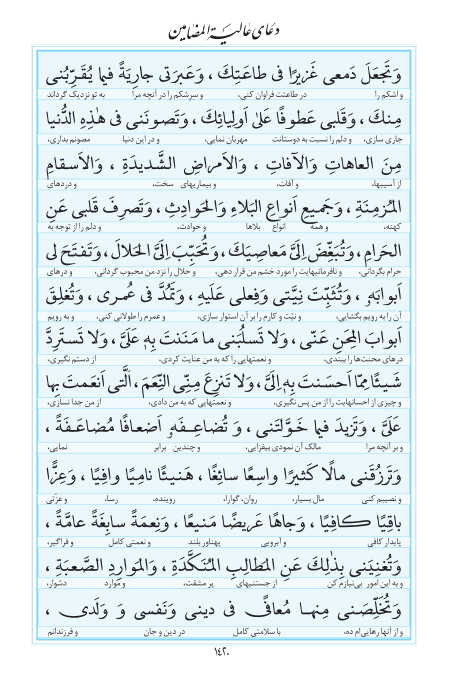 دعای عالیة المضامین
وَتَجعَلَ دَمعی غَزیرًا فی طاعَتِکَ ، وَعَبرَتی جارِیَةً فیما یُقَرِّبُنی
و اشکم را در طاعتت فراوان کنی، و سرشکم را در آنچه مرا به تو نزدیک گرداند
مِنکَ ، وَقَلبی عَطوفًا عَلیٰ اَولِیائِکَ ، وَتَصونَنی فی هٰذِهِ الدُّنیا
جاری سازی، و دلم را نسبت به دوستانت مهربان نمایی، و در این دنیا مصونم بداری،
مِنَ العاهاتِ وَالآفاتِ ، وَالاَمراضِ الشَّدیدَةِ ، وَالاَسقامِ
از آسیبها، و آفات، و بیماریهای سخت، و دردهای
المُزمِنَةِ ، وَجَمیعِ اَنواعِ البَلاءِ وَالحَوادِثِ ، وَتَصرِفَ قَلبی عَنِ
کهنه، و همه انواع بلاها و حوادث، و دلم را از توجه به
الحَرامِ ، وَتُبَغِّضَ اِلَیَّ مَعاصِیَکَ ، وَتُحَبِّبَ اِلَیَّ الحَلالَ ، وَتَفتَحَ لی
حرام بگردانی، و نافرمانیهایت را مورد خشم من قرار دهی، و حلال را نزد من محبوب گردانی، و درهای
اَبوابَهٗ ، وَتُثَبِّتَ نِیَّتی وَفِعلی عَلَیهِ ، وَتَمُدَّ فی عُمری ، وَتُغلِقَ
آن را به رویم بگشایی، و نیّت و کارم را بر آن استوار سازی، و عمرم را طولانی کنی، و به رویم
اَبوابَ المِحَنِ عَنّی ، وَلا تَسلُبَنی ما مَنَنتَ بِهٖ عَلَیَّ ، وَلا تَستَرِدَّ
درهای محنت‌ها را ببندی، و نعمتهایی را که به من عنایت کردی، از دستم نگیری،
شَیئًا مِمّا اَحسَنتَ بِهٖ اِلَیَّ ، وَلا تَنزِعَ مِنِّی النِّعَمَ ، الَّتی اَنعَمتَ بِها
و چیزی از احسانهایت را از من پس نگیری، و نعمتهایی که به من دادی، از من جدا نسازی،
عَلَیَّ ، وَتَزیدَ فیما خَوَّلتَنی ، وَ تُضاعِفَهٗ اَضعافًا مُضاعَفَةً ،
و بر آنچه مرا مالک آن نمودی بیفزایی، و چندین برابر نمایی،
وَتَرزُقَنی مالًا کَثیرًا واسِعًا سائِغًا ، هَنیئًا نامِیًا وافِیًا ، وَعِزًّا
و نصیبم کنی مال بسیار، روان، گوارا، روینده، رسا، و عزّتی
باقِیًا کافِیًا ، وَجاهًا عَریضًا مَنیعًا ، وَنِعمَةً سابِغَةً عامَّةً ،
پایدار کافی و آبرویی پهناور بلند و نعمتی کامل و فراگیر،
وَتُغنِیَنی بِذٰلِکَ عَنِ المَطالِبِ المُنَکَّدَةِ ، وَالمَوارِدِ الصَّعبَةِ ،
و به این امور بی‌نیازم کن از جستنیهای پر مشقت، و موارد دشوار،
وَتُخَلِّصَنی مِنها مُعافًی فی دینی وَنَفسی وَ وَلَدی ،
و از آنها رهایی‌ام ده، با سلامتی کامل در دین و جان و فرزندانم
۱۴۲۰